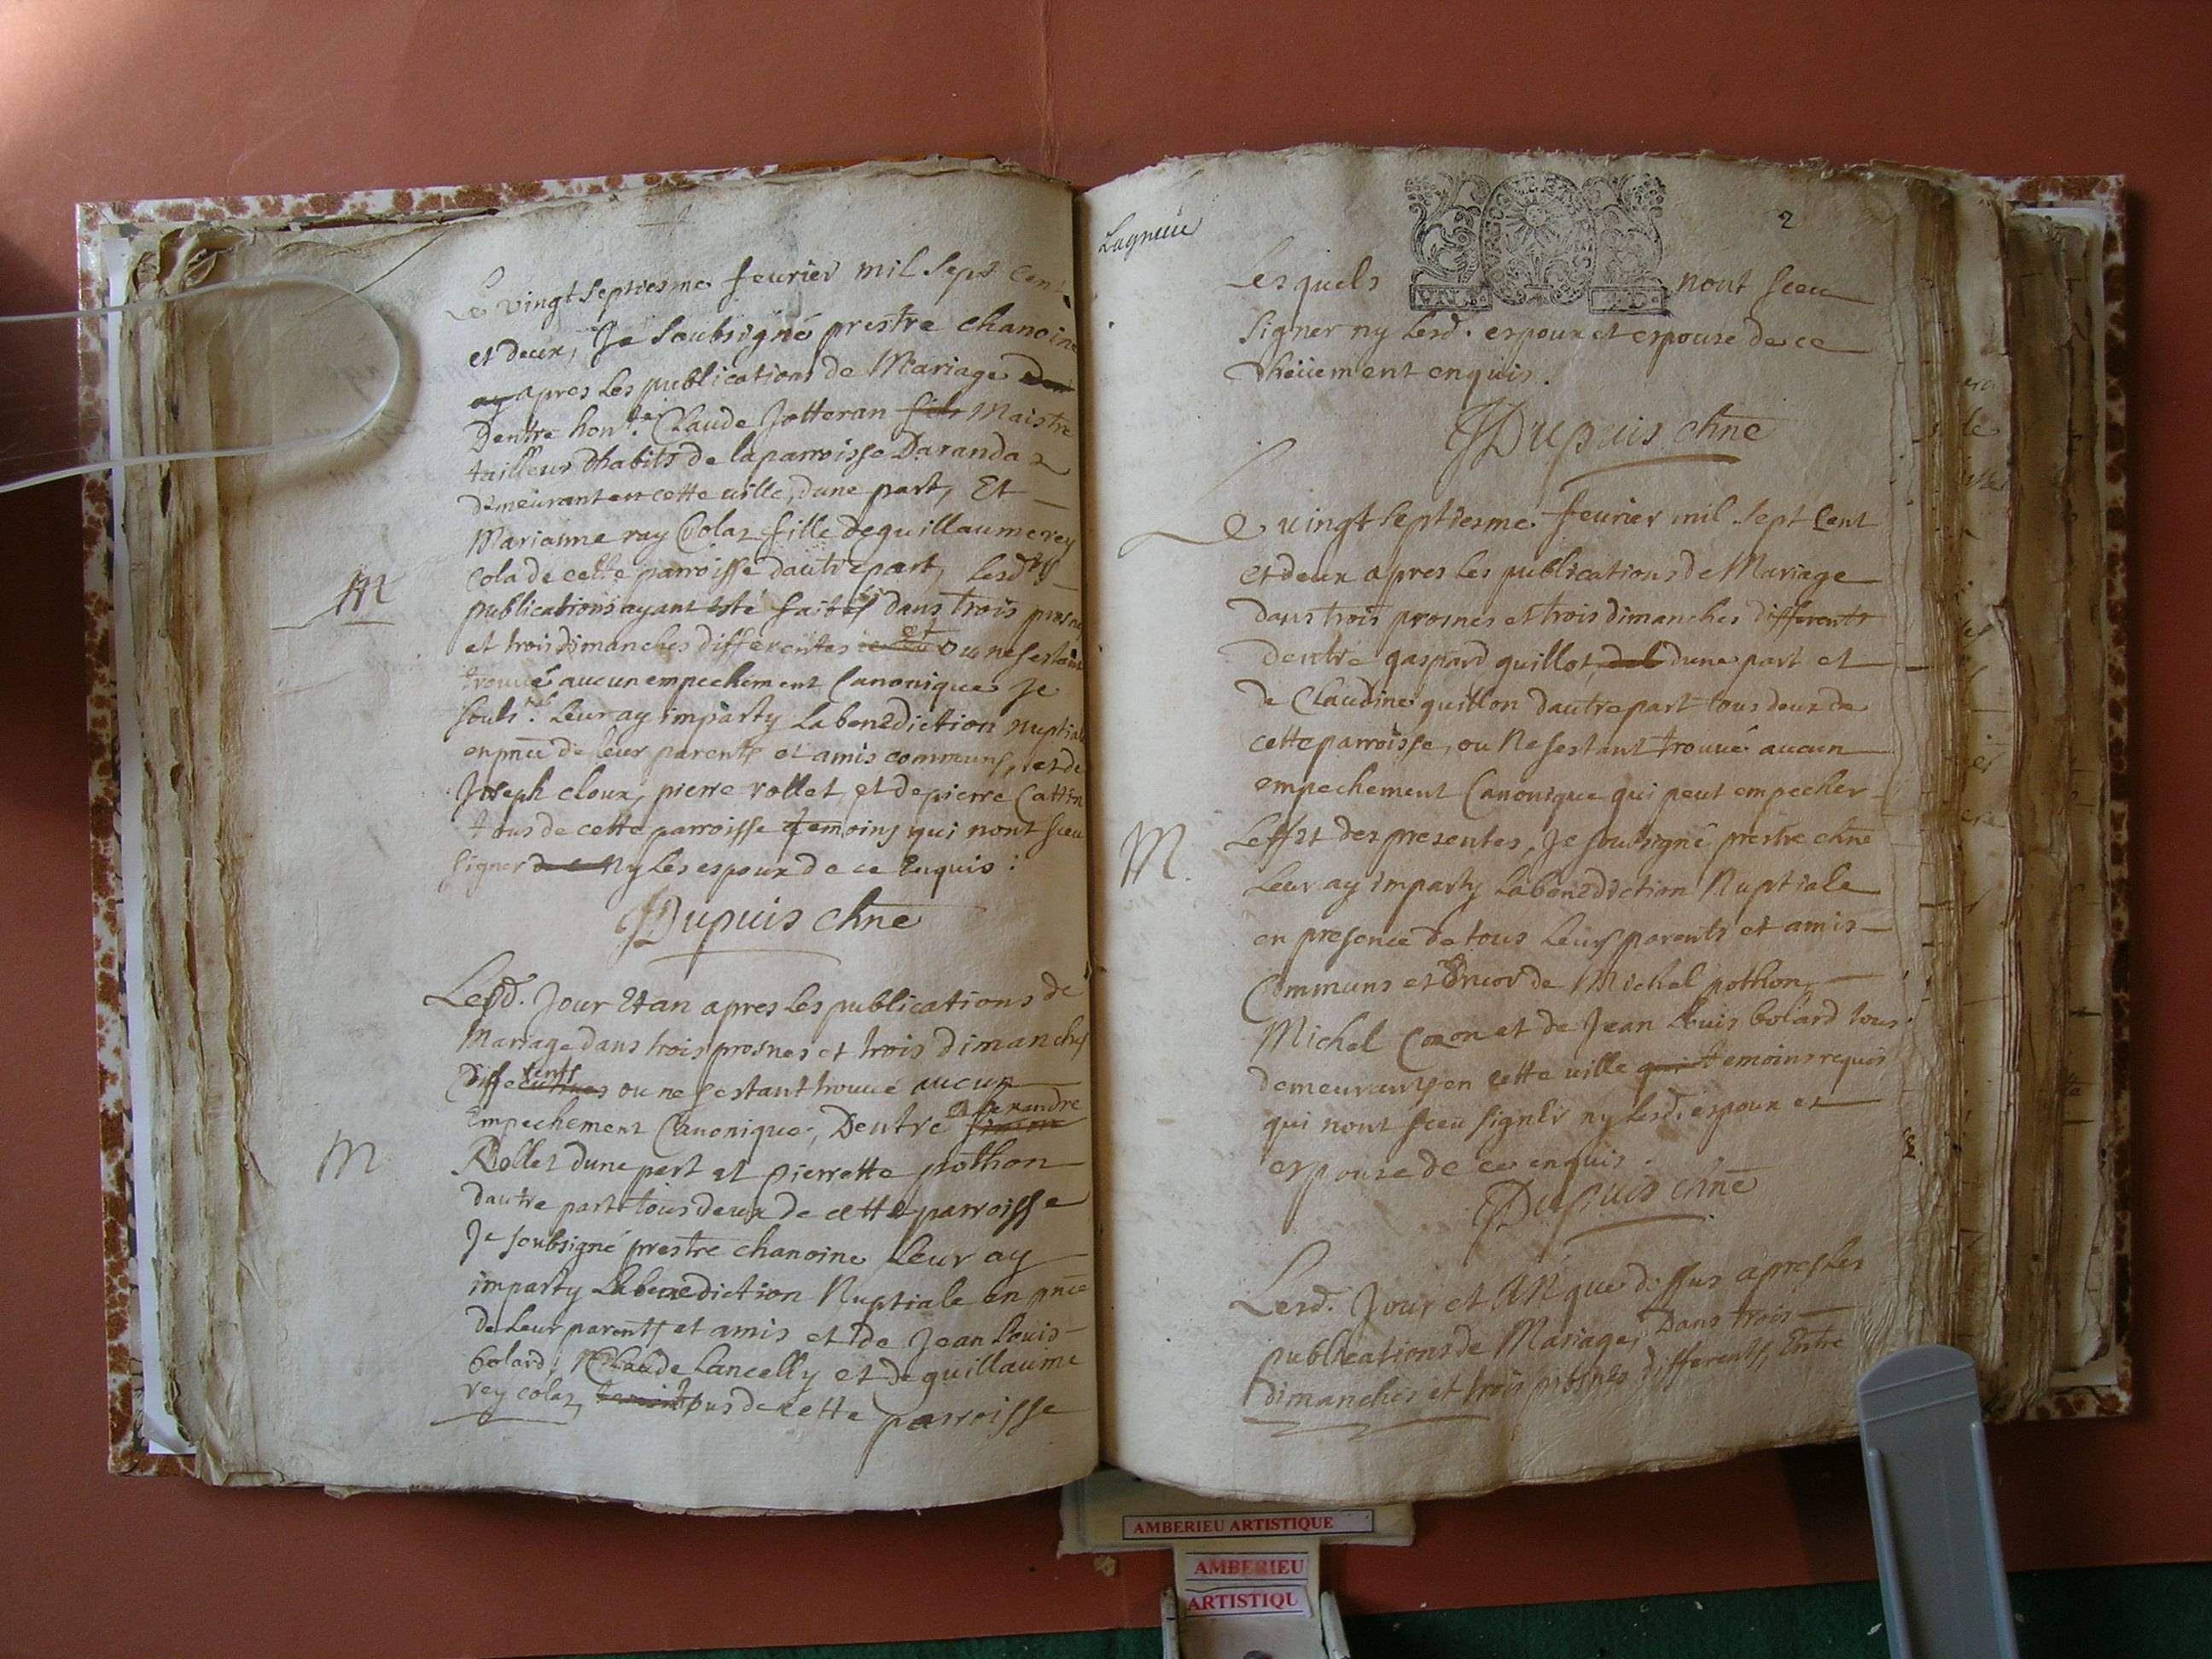 Le vingt septiesme feurier mil sept cent
et deux, Je soubsigné prestre chanoine
ay apres les publications de Mariage
Dentre hon. Claude Jotteran fils Maistre
tailleur dhabits de la parroisse Daranda
demeurant en cette ville, dune part, Et
Marianne ray Colaz fille de guillaume rey
cola de cette parroisse dautre part, lesd.
publications ayant esté faites dans trois prosnes
et trois dimanches differentes et ou ne sestant
trouué aucun empechement Canonique Je
soubs. leur ay imparty la benediction nuptiale
en pnce de leur parents et amis communs, et de
Joseph cloux, pierre rollet et de pierre Cattin
tous de cette parroisse temoins qui nont sceu
signer ny les espoux de ce Enquis :
JDupuis chne
M
Lesd. Jour Et an apres les publications de
Mariage dans trois prosnes et trois dimanches
differents ou ne sestant trouué aucun
Empechement Canonique, Dentre Alexandre
Rollet dune part et pierrette pothon
dautre part tous deux de cette parroisse
Je soubsigné prestre chanoine leur ay
imparty La benediction Nuptiale en pnce
de Leur parents et amis et de Jean Louis
bolard, Claude Lancelly et de guillaume
rey colaz, tous de cette parroisse
M
Lagnieu
2
Lesquels nont sceu
signer ny lesd. espoux et espouse de ce
dheüement enquis.
JDupuis chne
Le vingt septiesme feurier mil sept Cent
et deux apres les publications de Mariage
dans trois prosnes et trois dimanches differents
dentre gaspard guillot, dune part et
de Claudine guillon dautre part tous deux de
cette parroisse, ou Ne sestant trouué aucun
empechement Canonique qui peut empecher
Leffet des presentes, Je soubsigné prestre chne
Leur ay imparty la benediction Nuptiale
en presence de tous Leurs parents et amis
Communs et de Michel pothon,
Michel Cozon et de Jean Louis bolard tous
demeurants en cette ville qui temoins requis
qui nont sceu signér ny lesd. espoux et
espouse de ce enquis.
JDupuis chne
M.
Lesd. Jour et AN que dessus apres les
publications de Mariage, Dans trois
dimanches et trois prosnes differents, Entre
AMBERIEU ARTISTIQUE
AMBERIEU
ARTISTIQU